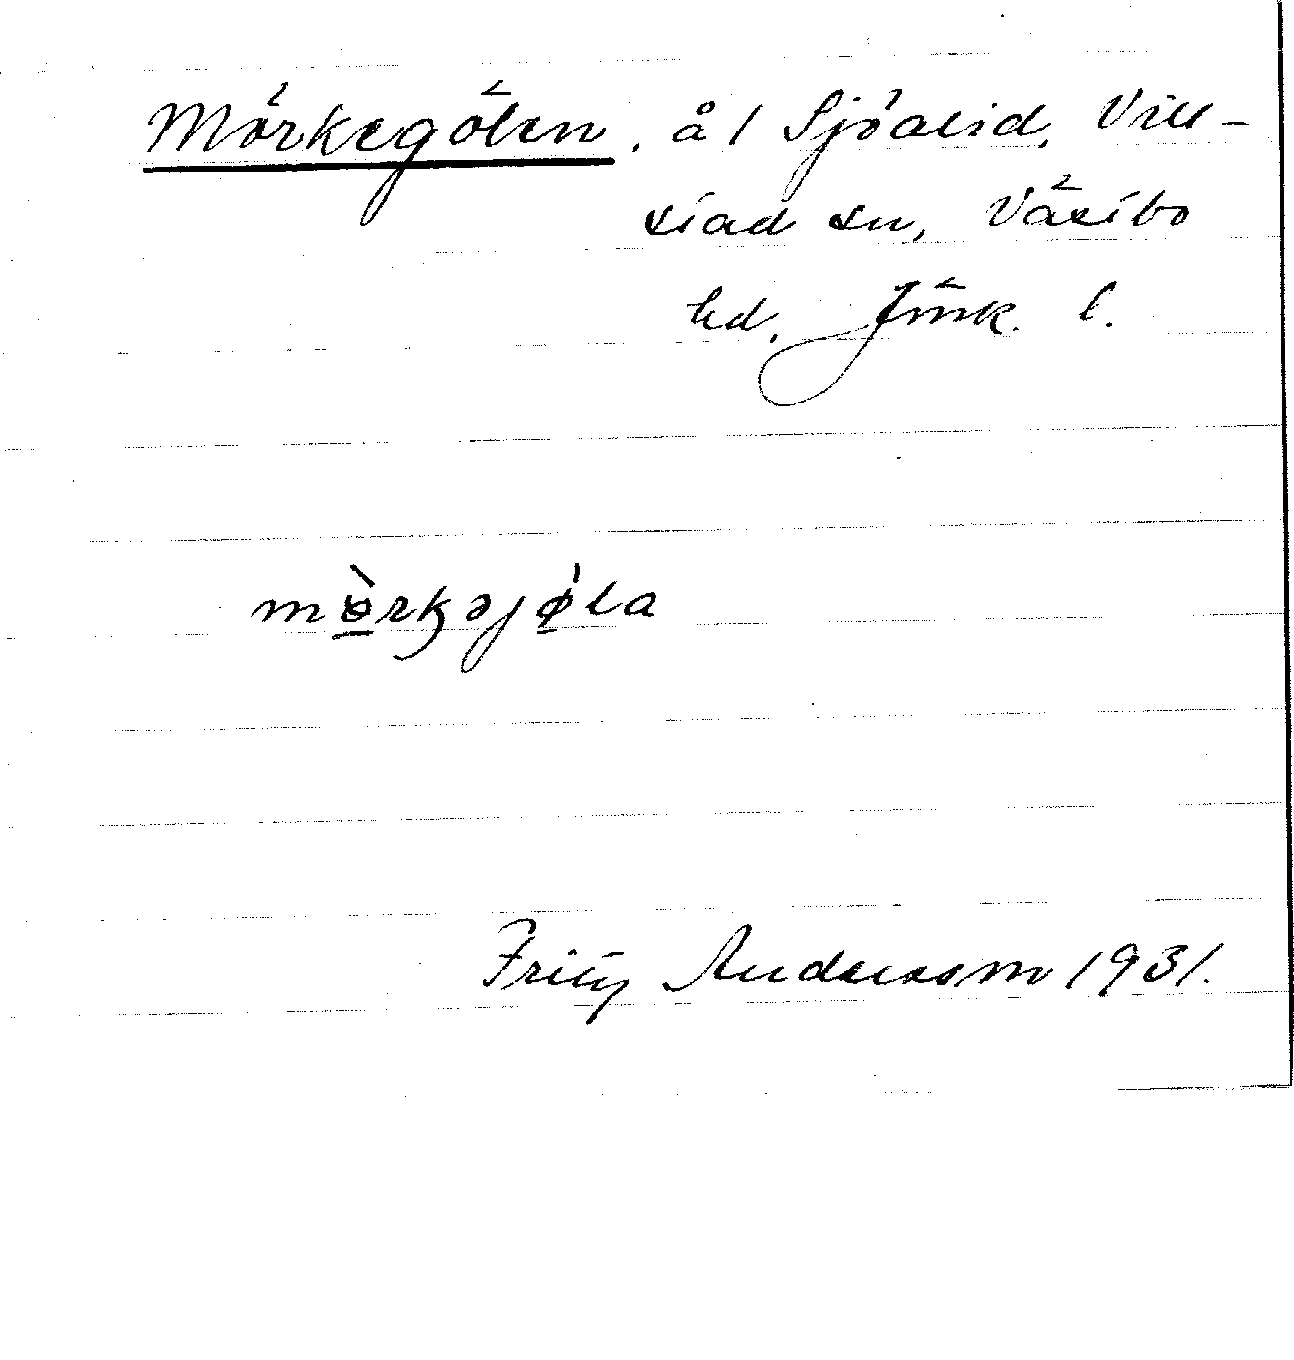 Mörkegölen, å / Sjöalid, Vill-
stad sn, Västbo
hd, Jönk. l.
mø̠̀rkəjǿ̠la
Fritz Andersson 1931.